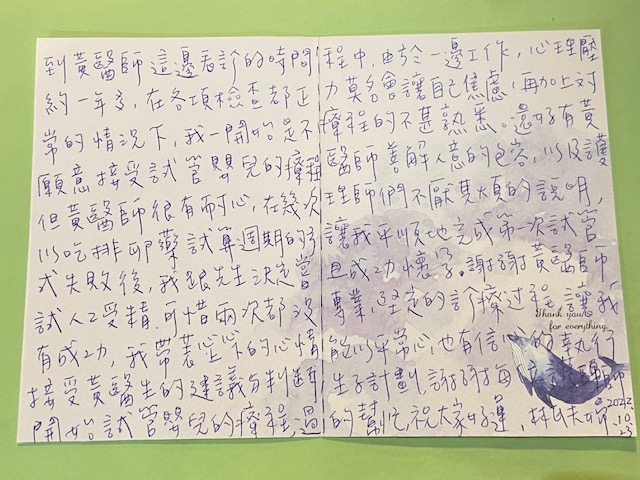 到黃醫師這邊看診的時間
約一年多，在各項檢查都正
常的情況下，我一開始是不
願意接受試管嬰兒的療程
但黃醫師很有耐心，在幾次
以吃排卵藥試算週期的方
式失敗後，我跟先生決定嘗
試人工受精，可惜兩次都沒
有成功，我帶著忐忑的心情
接受黃醫生的建議與判斷，
開始試管嬰兒的療程，過
程中，由於一邊工作，心理壓
力莫名會讓自己焦慮，再加上對
療程的不甚熟悉。還好有黃
醫師善解人意的包容，以及護
理師們不厭其煩的說明，
讓我平順地完成第一次試管
且成功懷孕。謝謝黃醫師
專業，堅定的診療過程，讓我
能以平常心，也有信心的執行
生子計劃，謝謝每 醫師
的幫忙，祝大家好運，林
2022
10
23
Thank you
for everything.